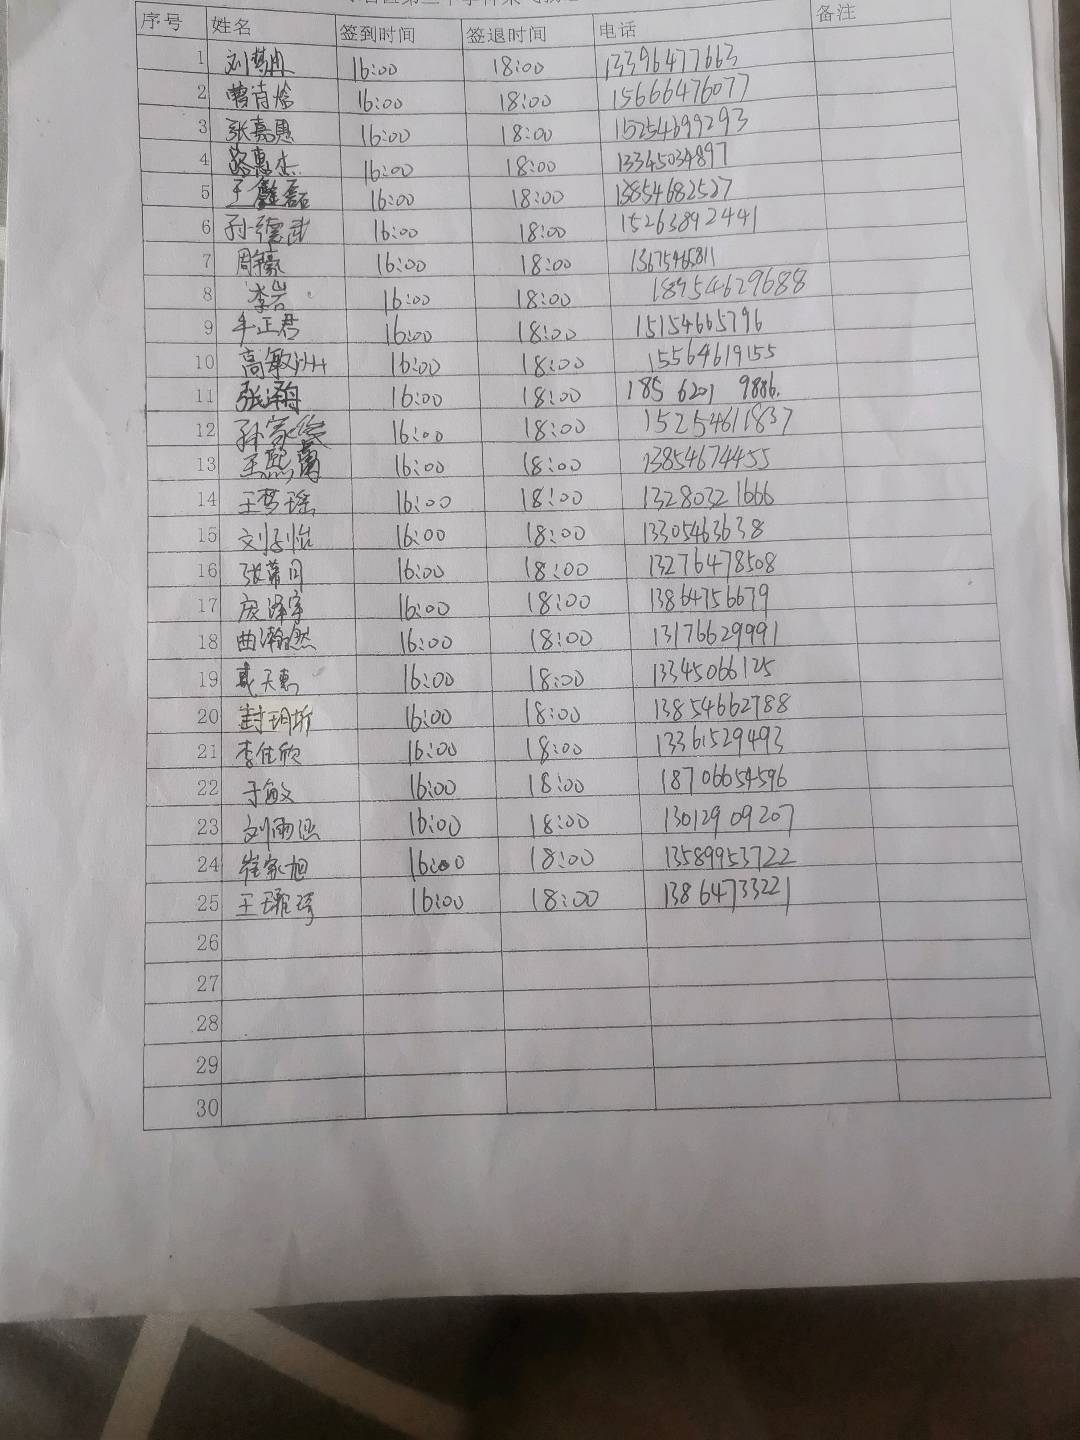 序号 姓名 签到时间 签退时间 电话 备注
1 刘梦冉 16:00 18:00 13396477663
2 曹诗焓 16:00 18:00 15666476077
3 张嘉惠 16:00 18:00 15254699293
4 路惠杰 16:00 18:00 13345034897
5 王鑫磊 16:00 18:00 13854682527
6 孙德武 16:00 18:00 15263892441
7 周豪 16:00 18:00 13675465811
8 李岩 16:00 18:00 18954629688
9 牟正君 16:00 18:00 15154665796
10 高敏 16:00 18:00 15564619155
11 张泽翔 16:00 18:00 185 6201 9886.
12 孙家俊 16:00 18:00 15254611837
13 王熙 16:00 18:00 13854674455
14 王梦瑶 16:00 18:00 13280321666
15 刘子怡 16:00 18:00 13305463638
16 张萧月 16:00 18:00 13276478508
17 庞泽宇 16:00 18:00 13864756679
18 曲瀚然 16:00 18:00 13176629991
19 戴天惠 16:00 18:00 13345066125
20 封玥圻 16:00 18:00 13854662788
21 李佳欣 16:00 18:00 13361529493
22 于敏文 16:00 18:00 18706654596
23 刘雨 16:00 18:00 13012909207
24 崔家旭 16:00 18:00 13589953722
25 王瑾琦 16:00 18:00 13864733221
26
27
28
29
30